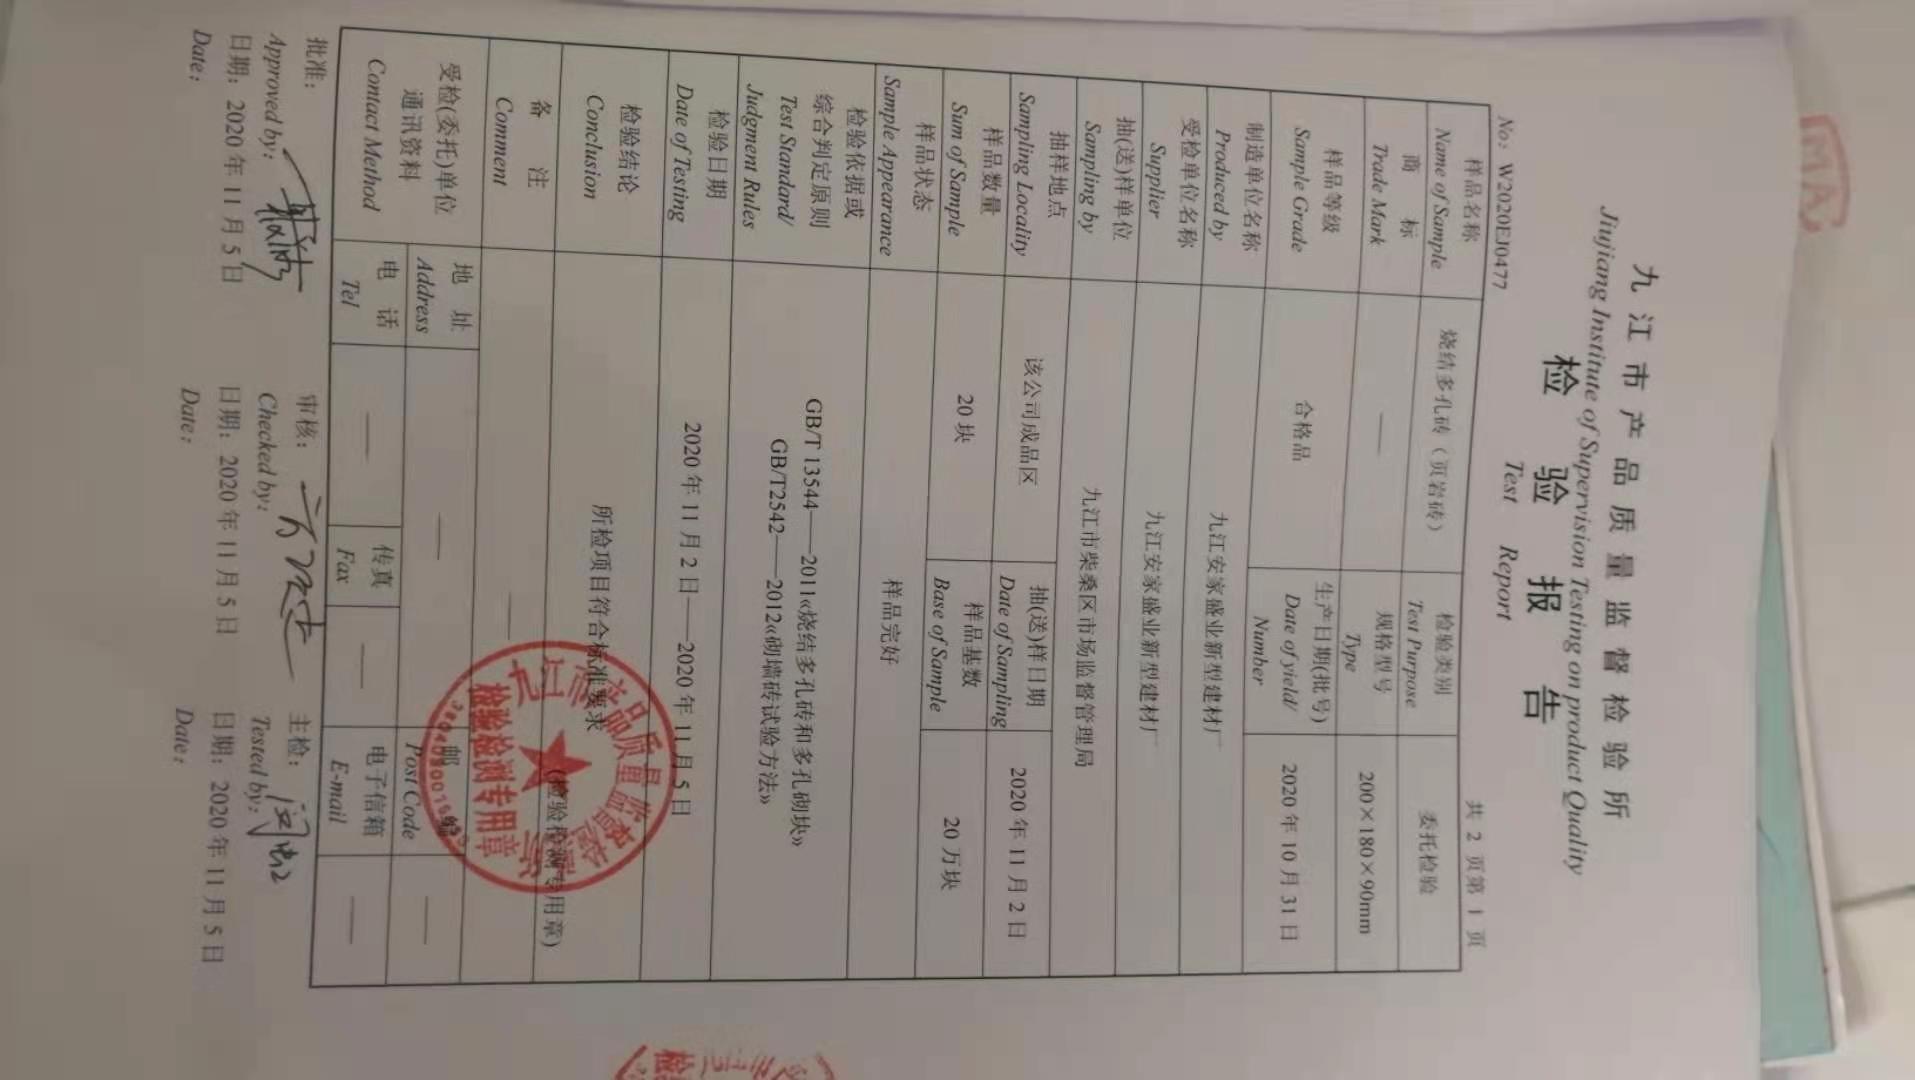 MA
九江市产品质量监督检验所
Jiujiang Institute of Supervision Testing on product Quality
检验报告
Test Report
No: W2020EJ0477
共 2 页第 1 页
样品名称
Name of Sample
烧结多孔砖（页岩砖）
检验类别
Test Purpose
委托检验
商 标
Trade Mark
——
规格型号
Type
200×180×90mm
样品等级
Sample Grade
合格品
生产日期(批号)
Date of yield/
Number
2020 年 10 月 31 日
制造单位名称
Produced by
九江安家盛业新型建材厂
受检单位名称
Supplier
九江安家盛业新型建材厂
抽(送)样单位
Sampling by
九江市柴桑区市场监督管理局
抽样地点
Sampling Locality
该公司成品区
抽(送)样日期
Date of Sampling
2020 年 11 月 2 日
样品数量
Sum of Sample
20 块
样品基数
Base of Sample
20 万块
样品状态
Sample Appearance
样品完好
检验依据或
综合判定原则
Test Standard/
Judgment Rules
GB/T 13544——2011«烧结多孔砖和多孔砌块»
GB/T2542——2012«砌墙砖试验方法»
检验日期
Date of Testing
2020 年 11 月 2 日——2020 年 11 月 5 日
检验结论
Conclusion
所检项目符合标准要求
(检验检测专用章)
九江市产品质量监督检验所
检验检测专用章
备 注
Comment
——
受检(委托)单位
通讯资料
Contact Method
地 址
Address
——
邮编
Post Code
——
电 话
Tel
——
传真
Fax
——
电子信箱
E-mail
——
批准：
Approved by:
日期: 2020 年 11 月 5 日
Date:
审核：
Checked by:
日期: 2020 年 11 月 5 日
Date:
主检：
Tested by:
日期: 2020 年 11 月 5 日
Date: